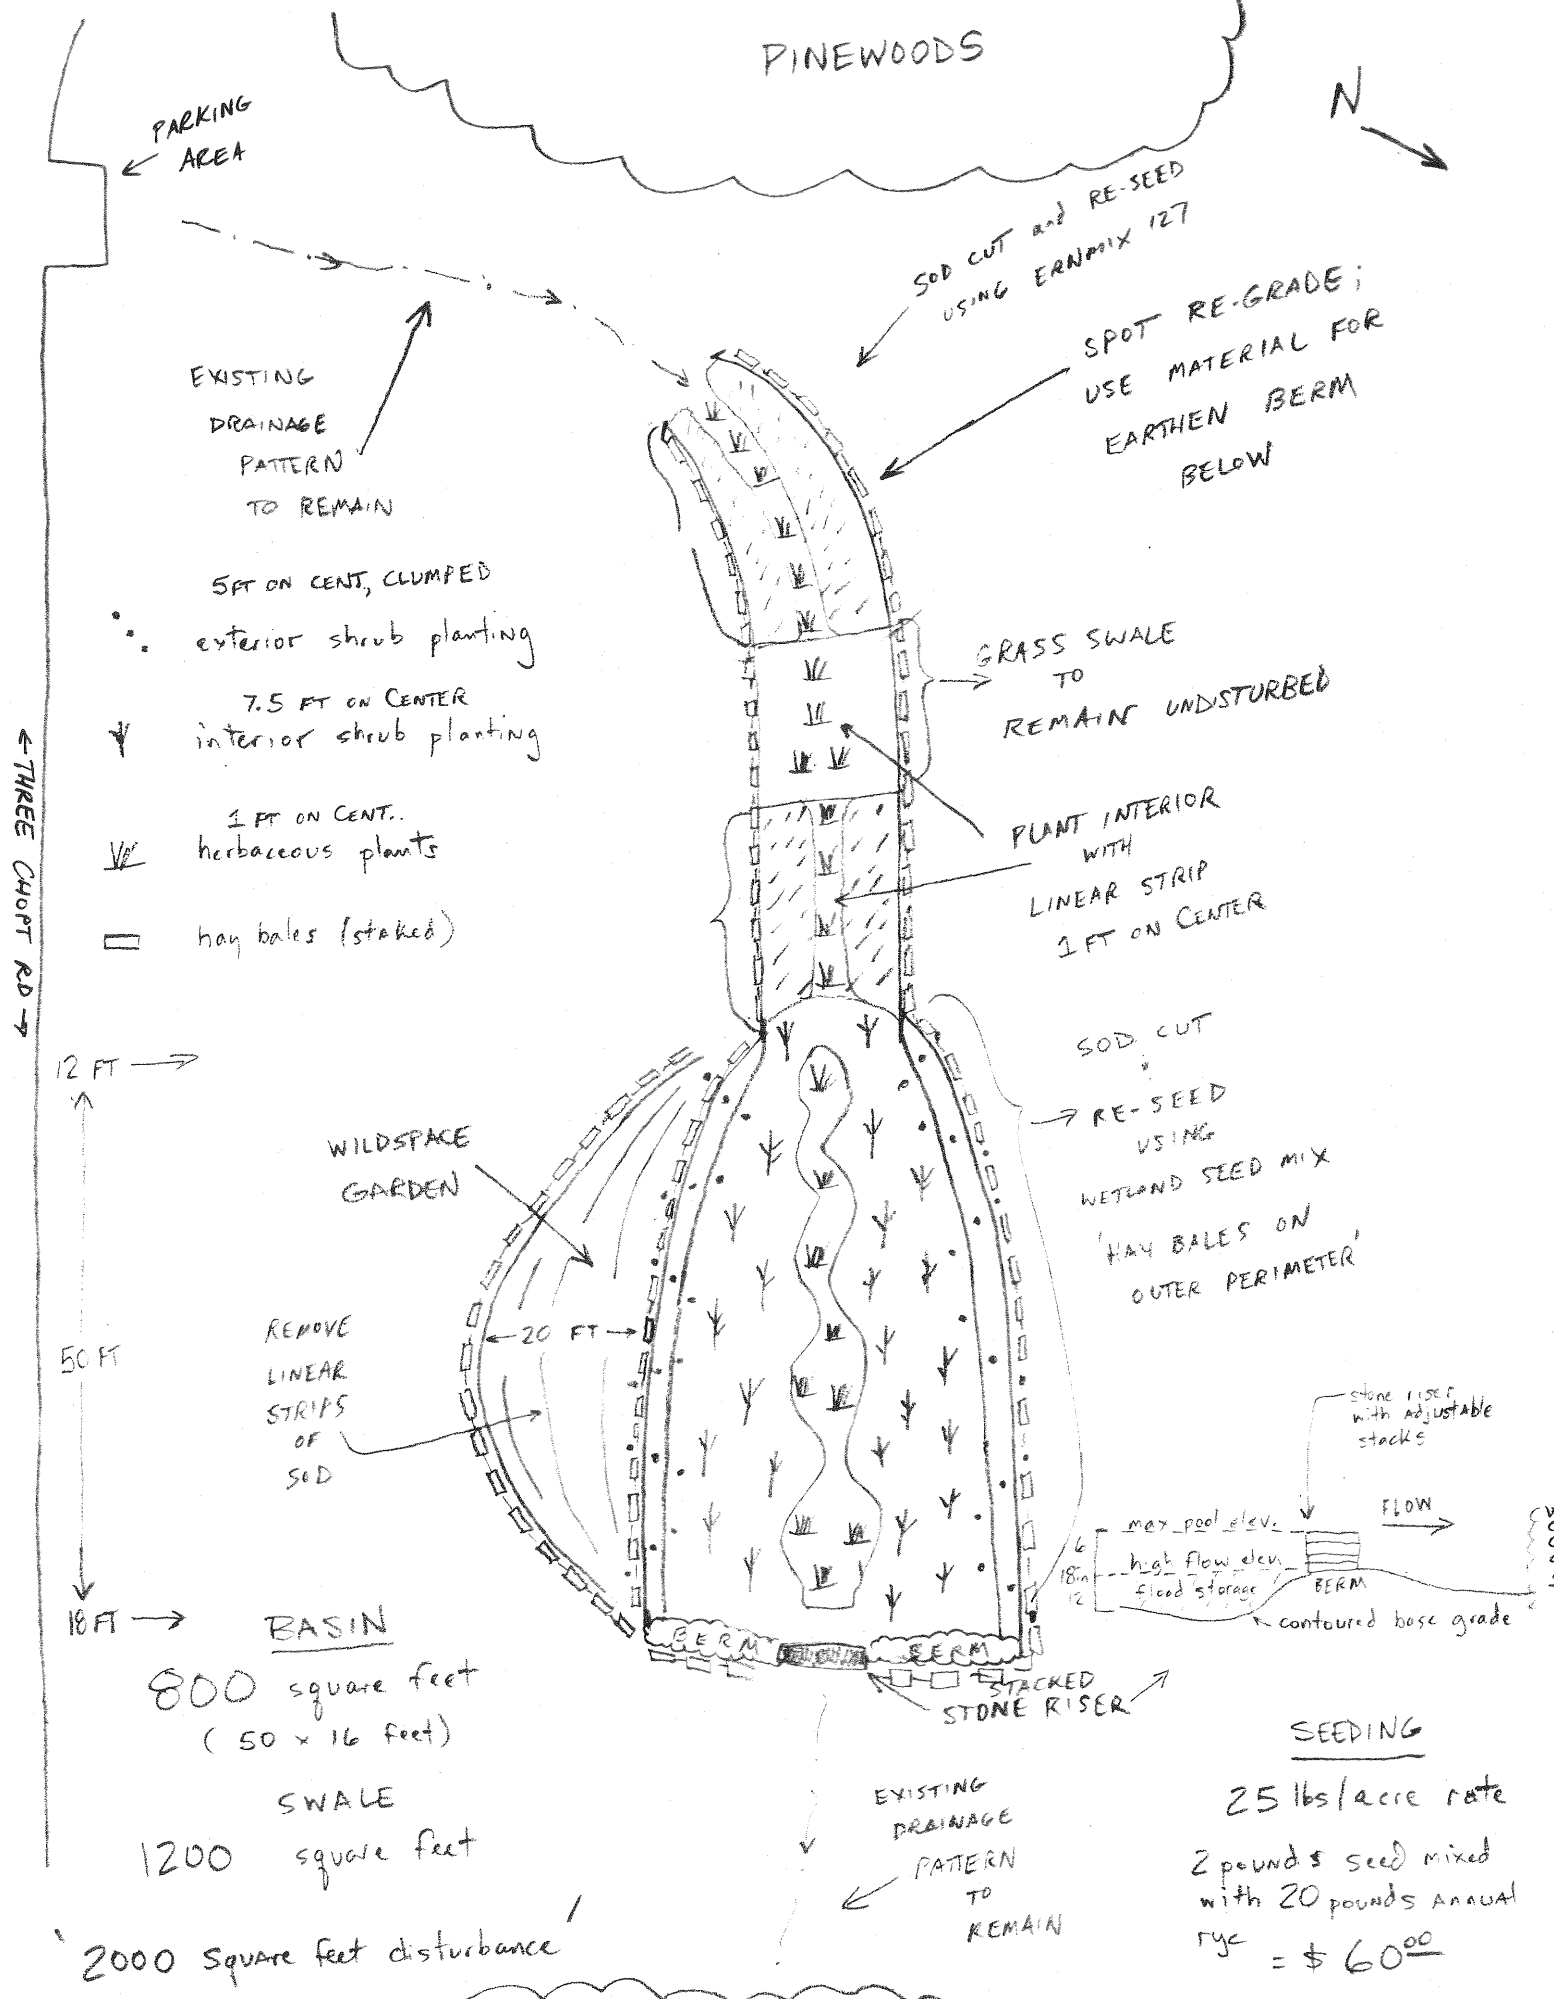 PINEWOODS
N
PARKING
AREA
SOD CUT and RE-SEED
USING ERNMIX 127
SPOT RE-GRADE;
USE MATERIAL FOR
EARTHEN BERM
BELOW
EXISTING
DRAINAGE
PATTERN
TO REMAIN
5FT ON CENT, CLUMPED
exterior shrub planting
7.5 FT ON CENTER
interior shrub planting
1 FT ON CENT..
herbaceous plants
hay bales (staked)
GRASS SWALE
TO
REMAIN UNDISTURBED
PLANT INTERIOR
WITH
LINEAR STRIP
1 FT ON CENTER
←THREE CHOPT RD→
12 FT
50 FT
18 FT
WILDSPACE
GARDEN
20 FT
REMOVE
LINEAR
STRIPS
OF
SOD
SOD CUT
RE-SEED
USING
WETLAND SEED MIX
'HAY BALES ON
OUTER PERIMETER'
stone riser
with Adjustable
stacks
FLOW
max pool elev.
6
high flow elev.
18in
flood storage
12
BERM
contoured base grade
BERM
BERM
STACKED
STONE RISER
BASIN
800 square feet
(50 x 16 feet)
SWALE
1200 square feet
'2000 square feet disturbance'
EXISTING
DRAINAGE
PATTERN
TO
REMAIN
SEEDING
25 lbs/acre rate
2 pounds seed mixed
with 20 pounds ANNUAL
rye
= $60.00